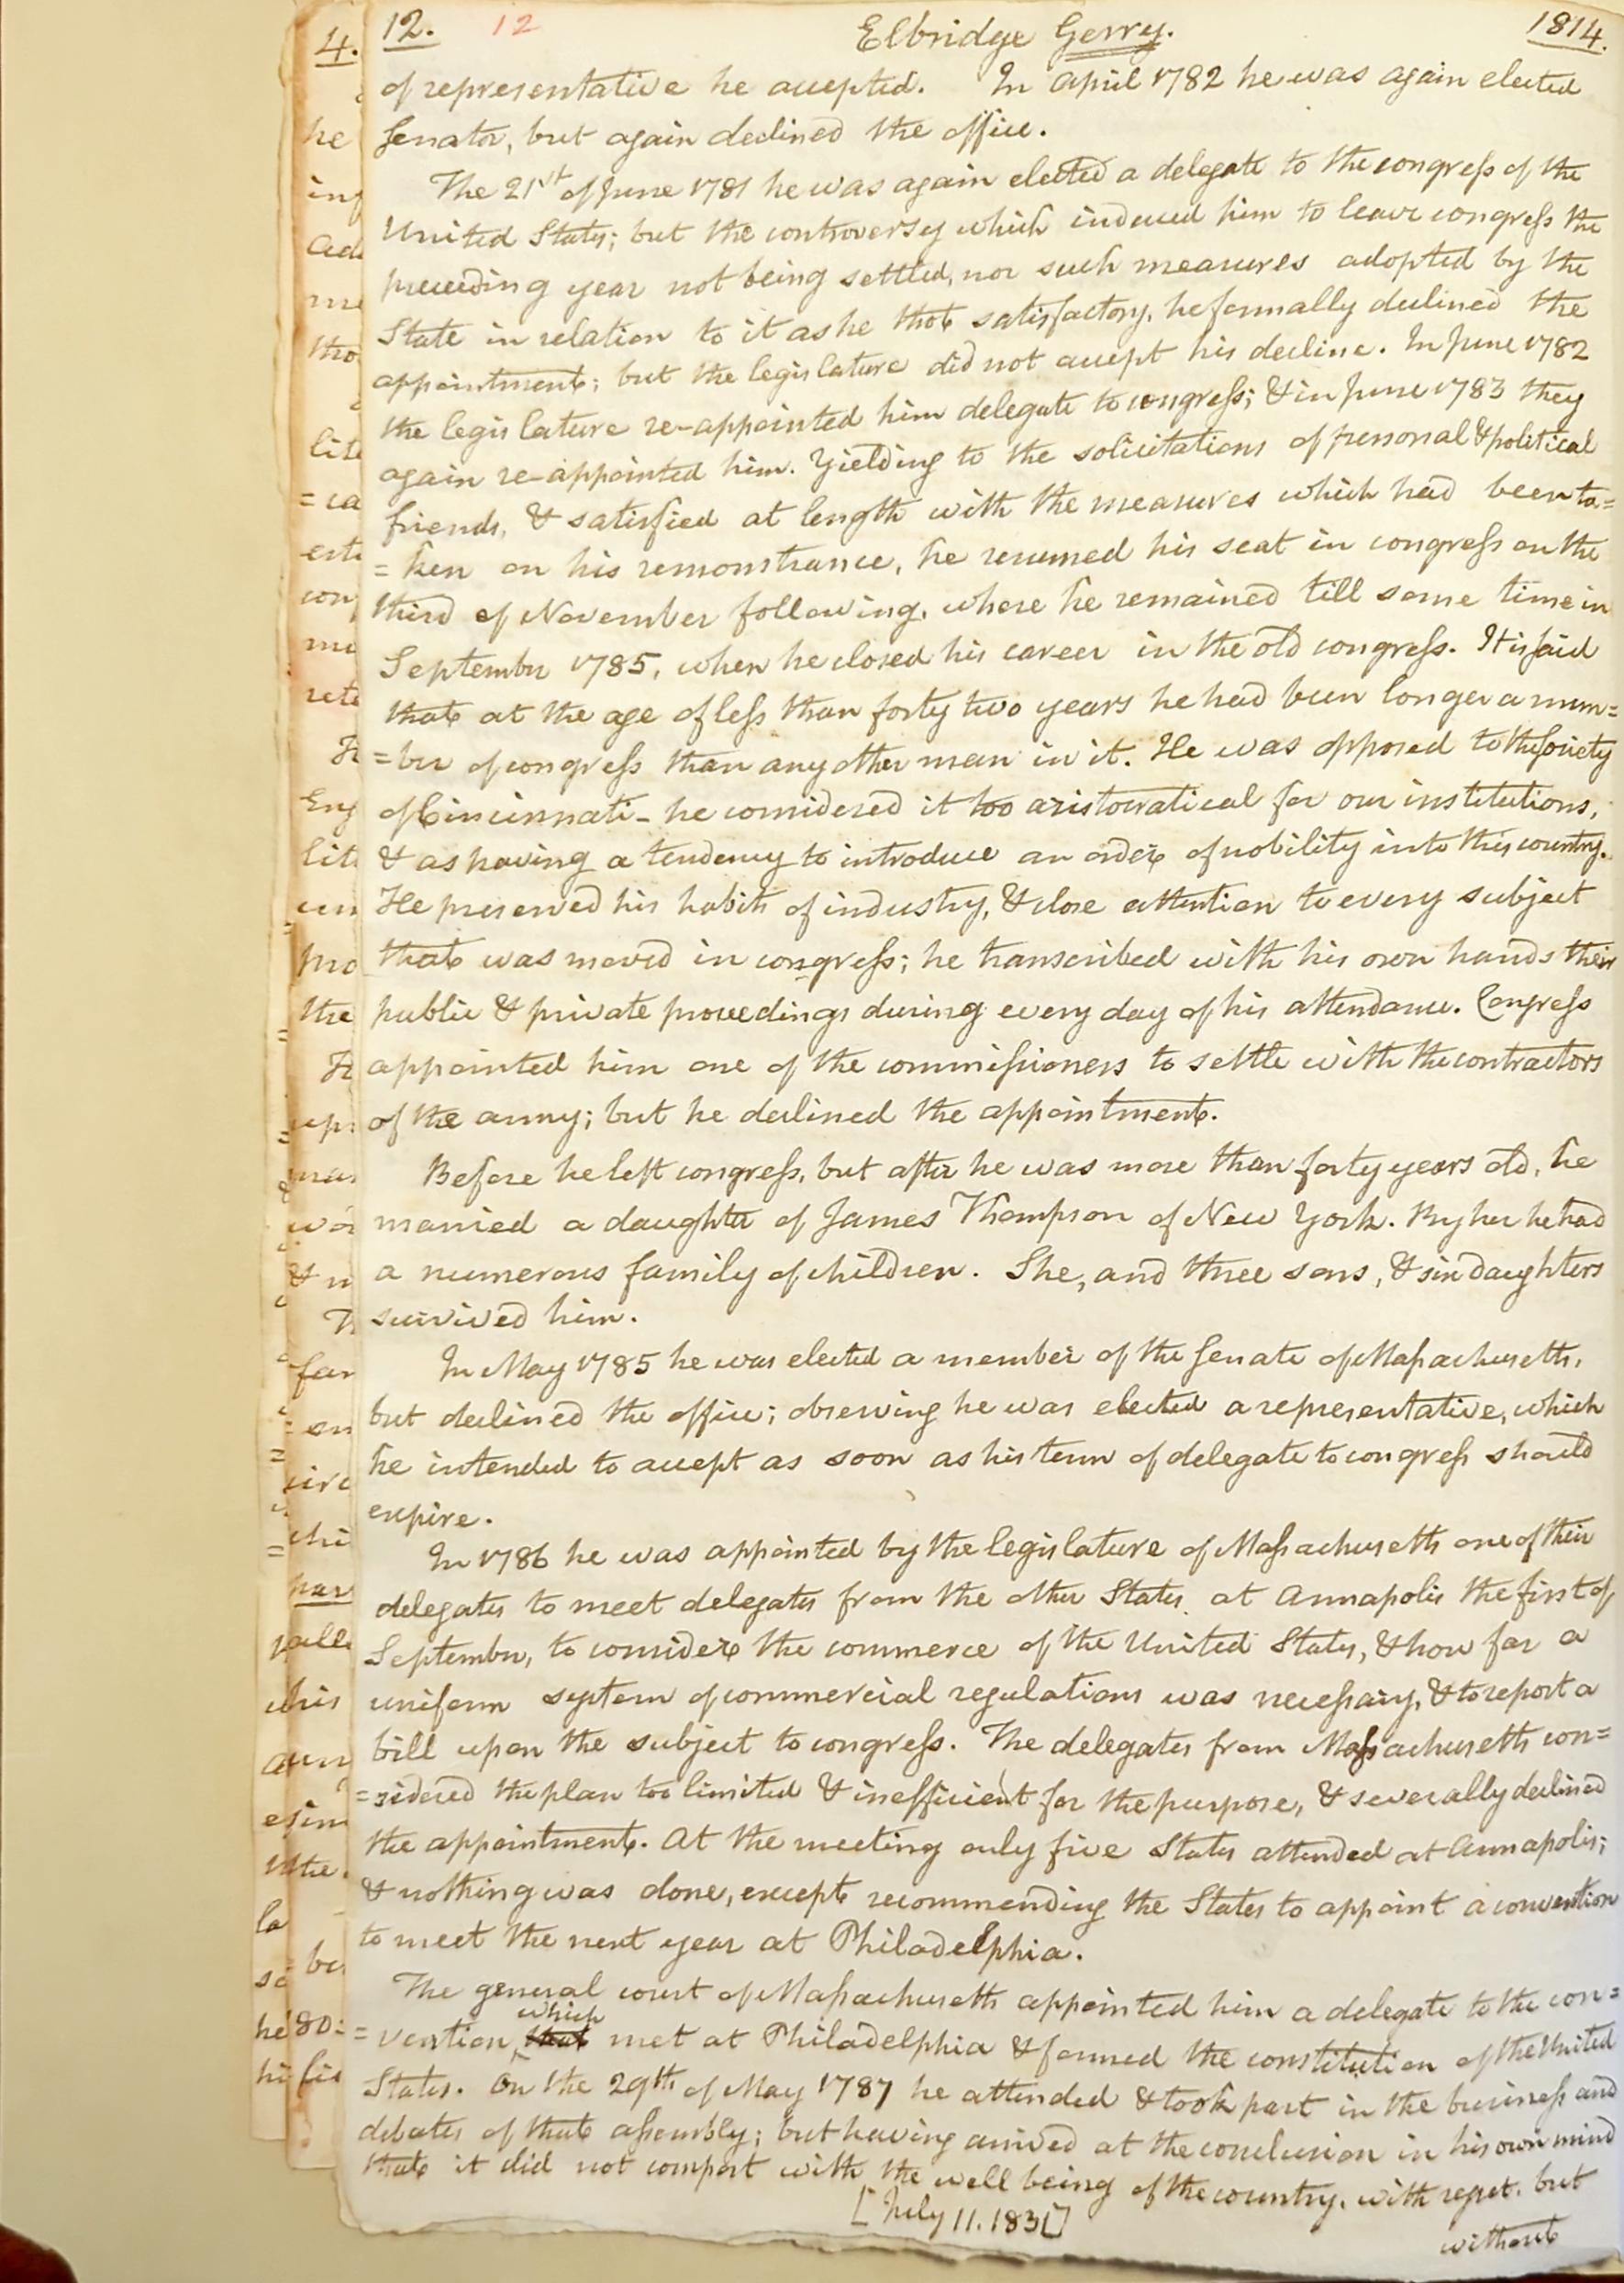 12. 12 Elbridge Gerry. 1814.
of representative he accepted. In April 1782 he was again elected
Senator, but again declined the office.
The 21st of June 1781 he was again elected a delegate to the congress of the
United States; but the controversy which induced him to leave congress the
preceeding year not being settled, nor such measures adopted by the
State in relation to it as he thot satisfactory, he formally declined the
appointment; but the legislature did not accept his decline. In June 1782
the legislature re-appointed him delegate to congress; & in June 1783 they
again re-appointed him. Yielding to the solicitations of personal & political
friends, & satisfied at length with the measures which had been ta=
=ken on his remonstrance, he resumed his seat in congress on the
third of November following, where he remained till some time in
September 1785, when he closed his career in the old congress. It is said
that at the age of less than forty two years he had been longer a mem=
=ber of congress than any other man in it. He was opposed to the Society
of Cincinnati - he considered it too aristocratical for our institutions,
& as having a tendency to introduce an order of nobility into this country.
He preserved his habits of industry, & close attention to every subject
that was moved in congress; he transcribed with his own hands their
public & private proceedings during every day of his attendance. Congress
appointed him one of the commissioners to settle with the contractors
of the army; but he declined the appointment.
Before he left congress, but after he was more than forty years old, he
married a daughter of James Thompson of New York. By her he had
a numerous family of children. She, and three sons, & six daughters
survived him.
In May 1785 he was elected a member of the Senate of Massachusetts,
but declined the office; observing he was elected a representative, which
he intended to accept as soon as his term of delegate to congress should
expire.
In 1786 he was appointed by the legislature of Massachusetts one of their
delegates to meet delegates from the other States at Annapolis the first of
September, to consider the commerce of the United States, & how far a
uniform system of commercial regulations was necessary, & to report a
bill upon the subject to congress. The delegates from Massachusetts con=
=sidered the plan too limited & inefficient for the purpose, & severally declined
the appointment. At the meeting only five States attended at Annapolis;
& nothing was done, except recommending the States to appoint a convention
to meet the next year at Philadelphia.
The general court of Massachusetts appointed him a delegate to the con=
which
=vention, that met at Philadelphia & formed the constitution of the United
States. On the 29th of May 1787 he attended & took part in the business and
debates of that assembly; but having arrived at the conclusion in his own mind
that it did not comport with the well being of the country, with regret, but
[July 11. 1831]
without